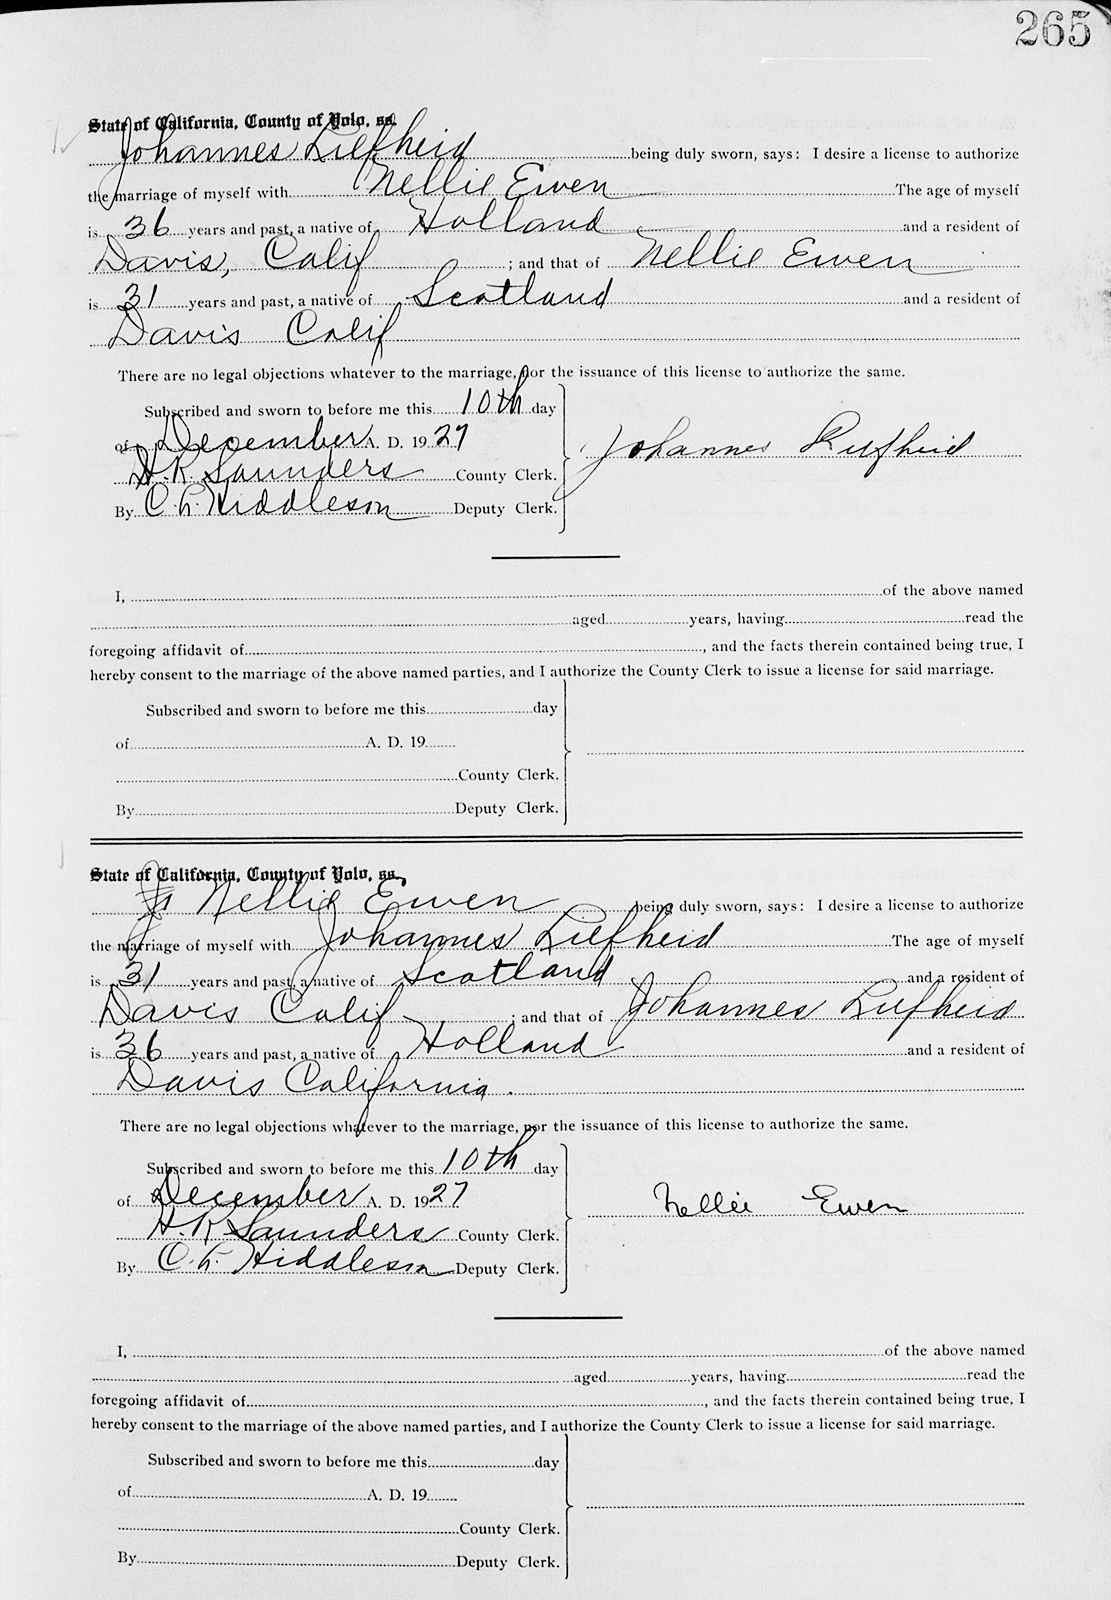 265
State of California, County of Yolo, ss.
Johannes Liefheid being duly sworn, says: I desire a license to authorize
the marriage of myself with Nellie Ewen The age of myself
is 36 years and past, a native of Holland and a resident of
Davis, Calif ; and that of Nellie Ewen
is 31 years and past, a native of Scotland and a resident of
Davis Calif
There are no legal objections whatever to the marriage, nor the issuance of this license to authorize the same.
Subscribed and sworn to before me this 10th day
of December A. D. 1927
Johannes Liefheid
H. R. Saunders County Clerk.
By C. L. Hiddleson Deputy Clerk.
I, of the above named
aged years, having read the
foregoing affidavit of , and the facts therein contained being true, I
hereby consent to the marriage of the above named parties, and I authorize the County Clerk to issue a license for said marriage.
Subscribed and sworn to before me this day
of A. D. 19
County Clerk.
By Deputy Clerk.
State of California, County of Yolo, ss.
Nellie Ewen being duly sworn, says: I desire a license to authorize
the marriage of myself with Johannes Liefheid The age of myself
is 31 years and past, a native of Scotland and a resident of
Davis Calif ; and that of Johannes Liefheid
is 36 years and past, a native of Holland and a resident of
Davis California.
There are no legal objections whatever to the marriage, nor the issuance of this license to authorize the same.
Subscribed and sworn to before me this 10th day
of December A. D. 1927
Nellie Ewen
H. R. Saunders County Clerk.
By C. L. Hiddleson Deputy Clerk.
I, of the above named
aged years, having read the
foregoing affidavit of , and the facts therein contained being true, I
hereby consent to the marriage of the above named parties, and I authorize the County Clerk to issue a license for said marriage.
Subscribed and sworn to before me this day
of A. D. 19
County Clerk.
By Deputy Clerk.